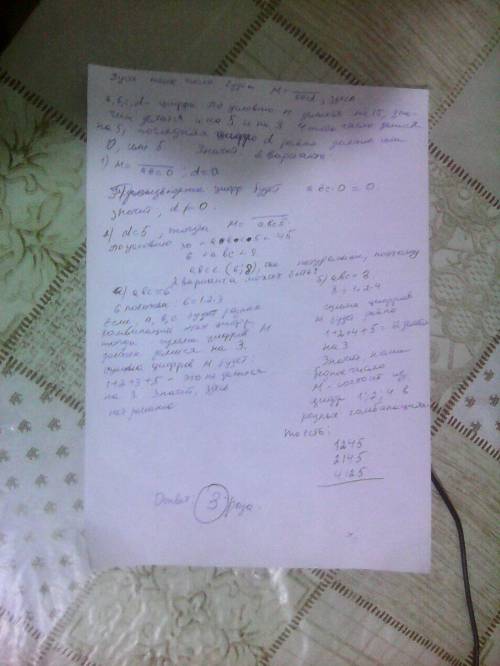 Пусть наше число будет M = abcd, здесь
a, b, c, d - цифры. По условию M делится на 15, зна-
чит делится и на 5, и на 3. Чтобы число делилось
на 5, последняя цифра d равна должна
0, или 5. Значит 2 варианта
1) M = abc0; d=0
Произведение цифр будет abc·0 = 0.
Значит, d ≠ 0.
2) d=5, тогда M = abc5.
По условию 30 < a·b·c·5 < 45
6 < abc < 9
abc (6; 8), поэтому
2 варианта
а) abc=6
6 = 1·2·3
Если a, b, c будет
комбинации этих цифр,
тогда сумма цифр M
должна делиться на 3.
Сумма цифр M будет:
1+2+3+5 - это не делится
на 3. Значит, здесь
нет решения
б) abc = 8
8 = 1·2·4
сумма цифр
M будет равна
1+2+4+5=12
на 3
Значит наше
число
M - состоит из
цифр 1; 2; 4 в
разных комбинациях
То есть:
1245
2145
4125
Ответ: 3